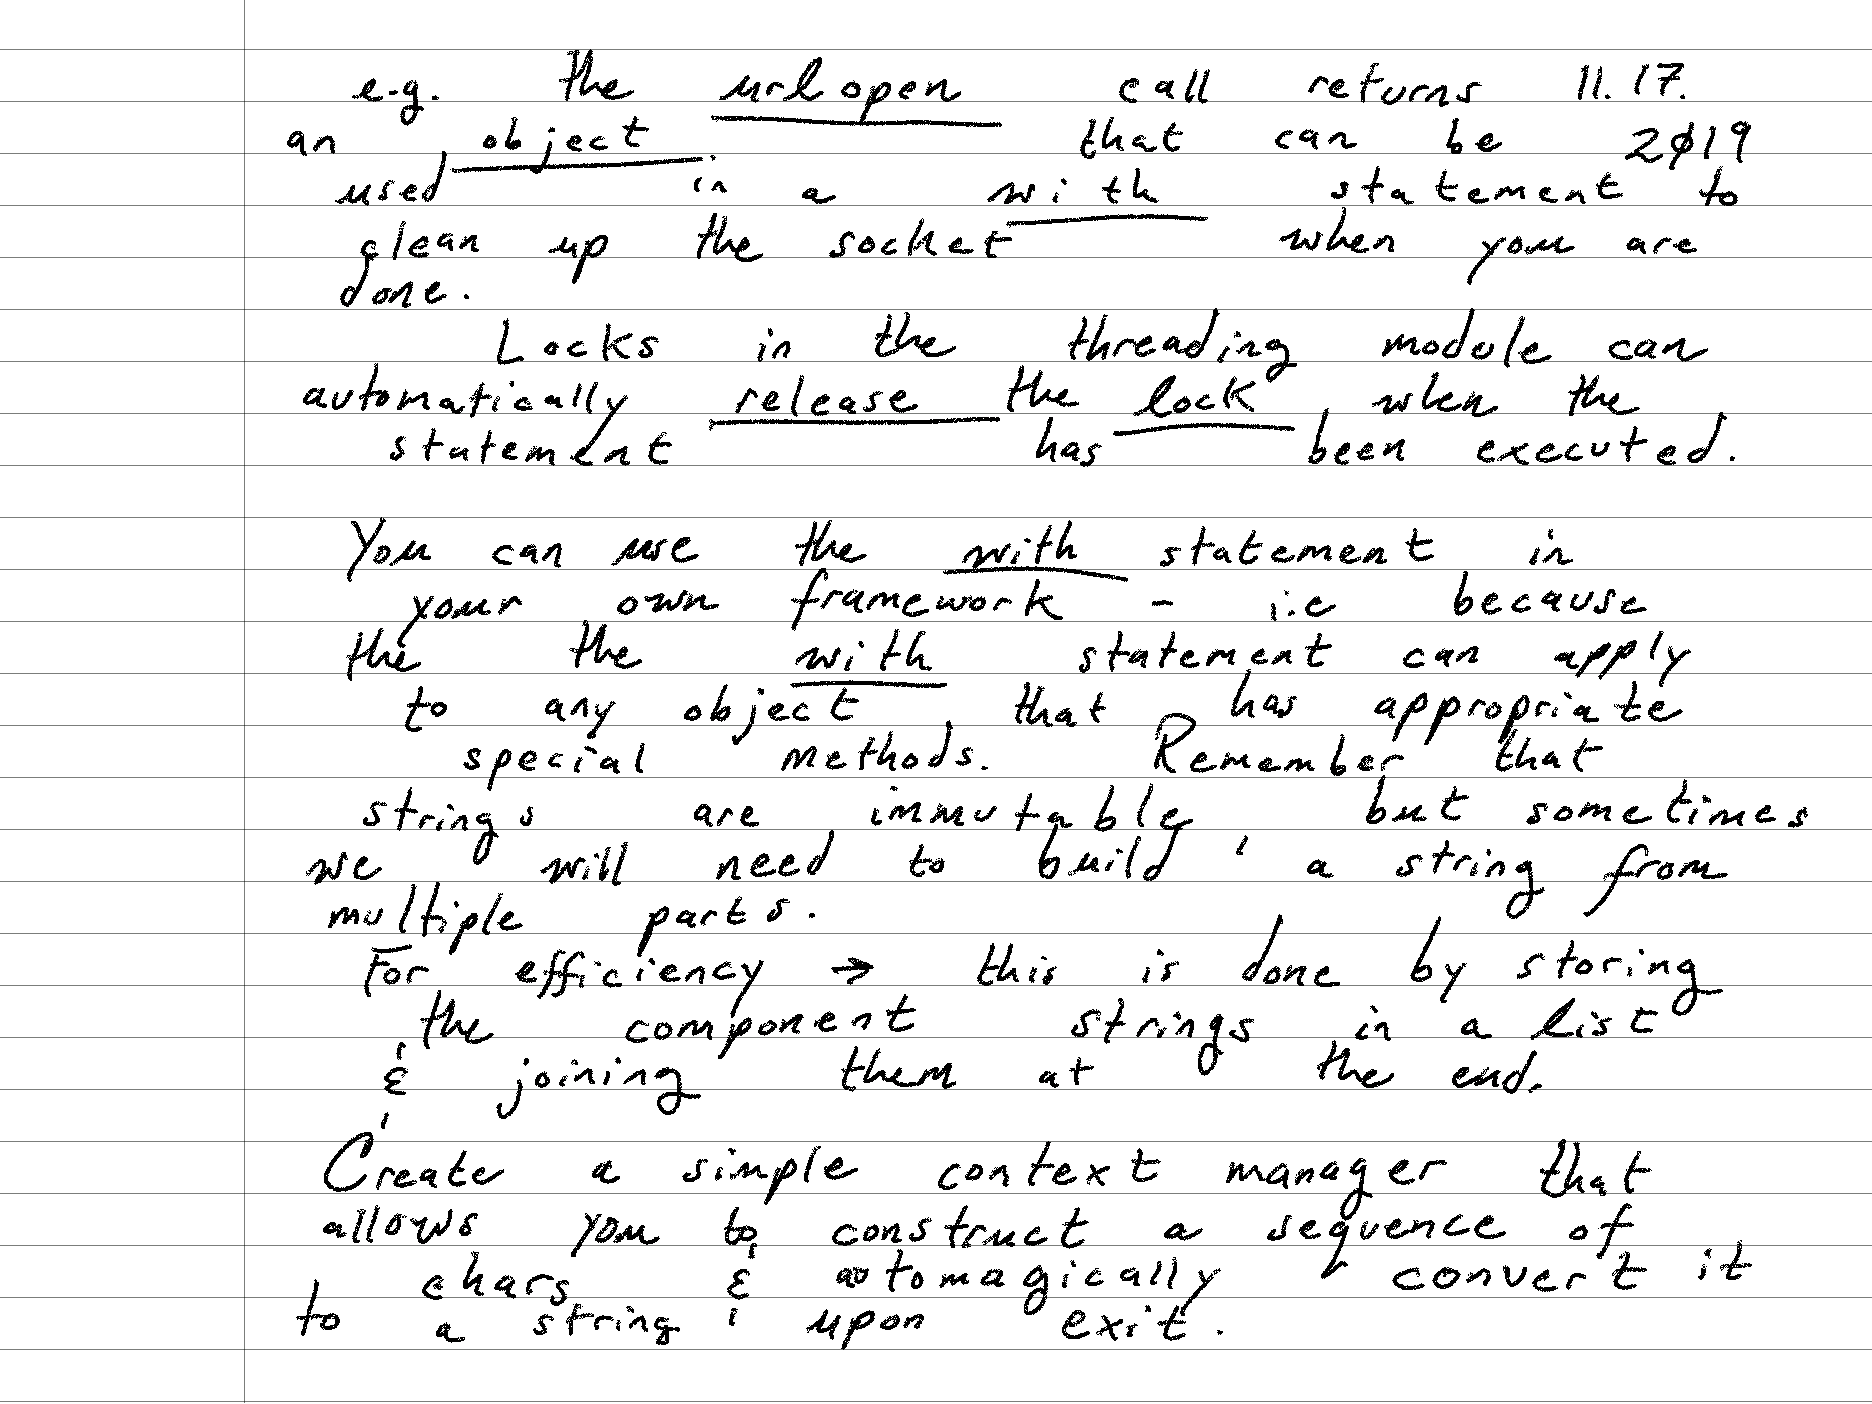 e.g. the urlopen call returns 11.17.
an object that can be 2019
used in a with statement to
clean up the socket when you are
done.
Locks in the threading module can
automatically release the lock when the
statement has been executed.
You can use the with statement in
your own framework - i.e because
the the with statement can apply
to any object that has appropriate
special methods. Remember that
strings are immutable, but sometimes
we will need to build a string from
multiple parts.
For efficiency → this is done by storing
the component strings in a list
& joining them at the end.
Create a simple context manager that
allows you to construct a sequence of
chars & automagically convert it
to a string upon exit.